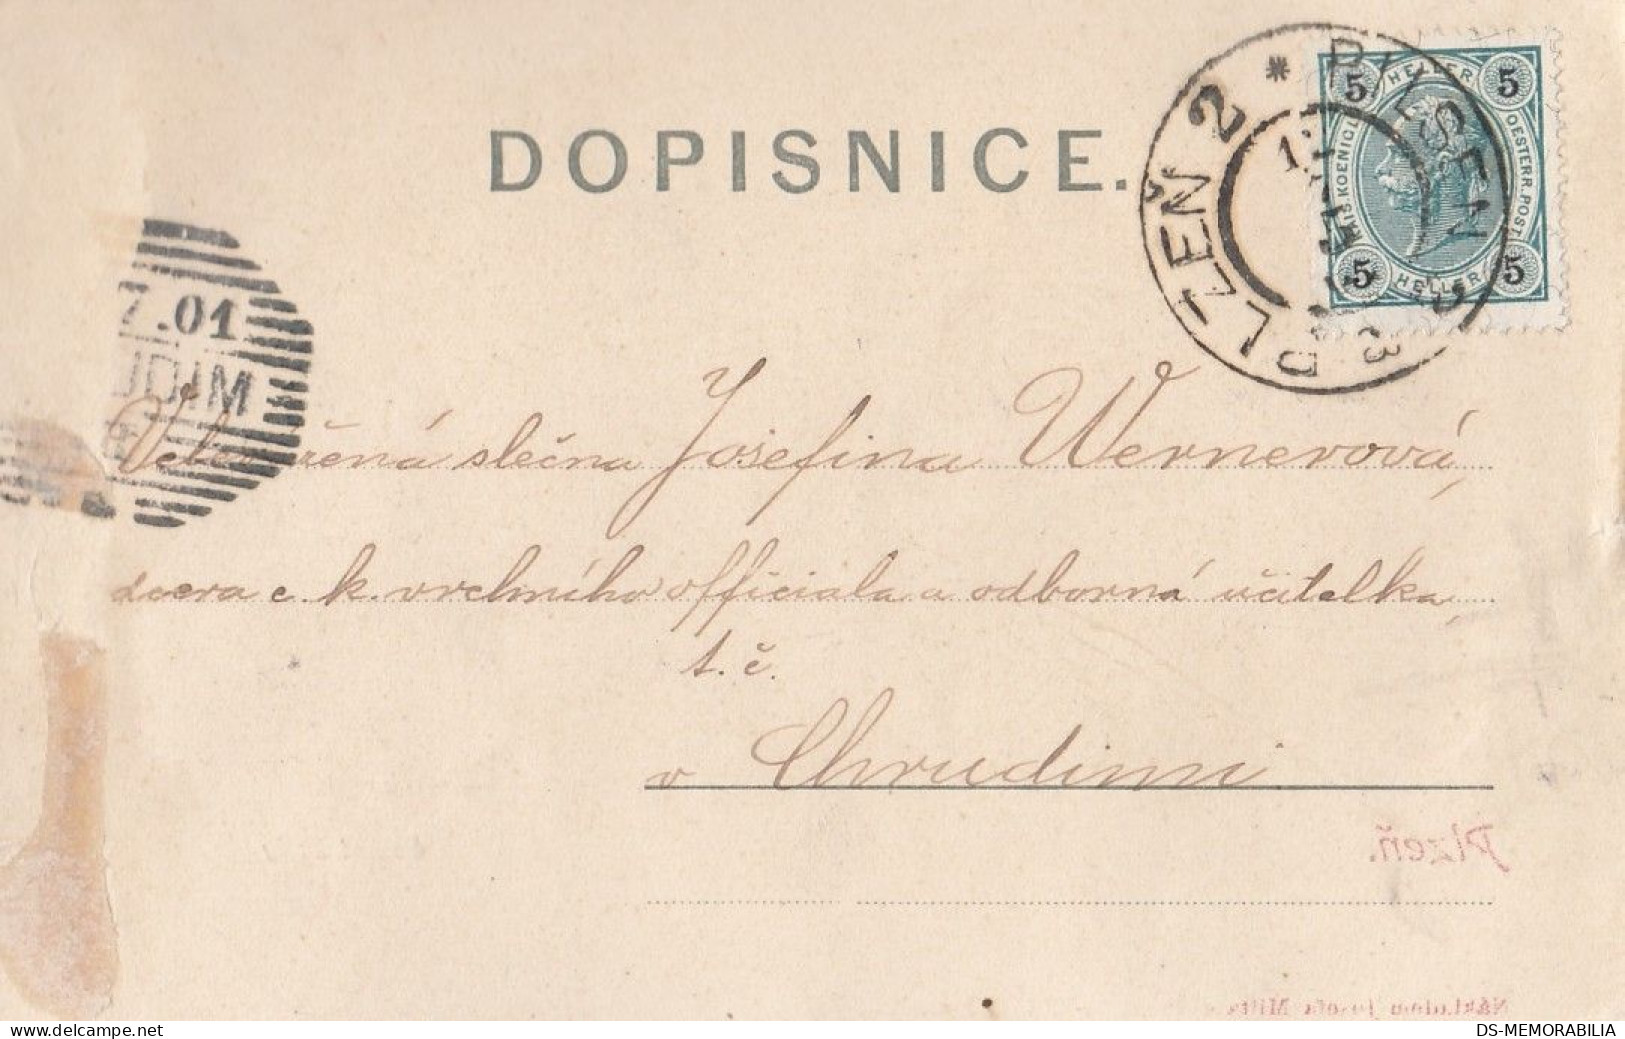 DOPISNICE.
PLZEŇ 2 * PILSEN 2
5 HELLER 5
KAIS. KOENIGL. OESTERR. POST
5 HELLER 5
7.01
UDIM
slečna Josefina Wernerová,
dcera c. k. vrchního officiala a odborná učitelka,
t. č.
v Chrudimi
Plzeň.
Nákladem Josefa
DS-MEMORABILIA